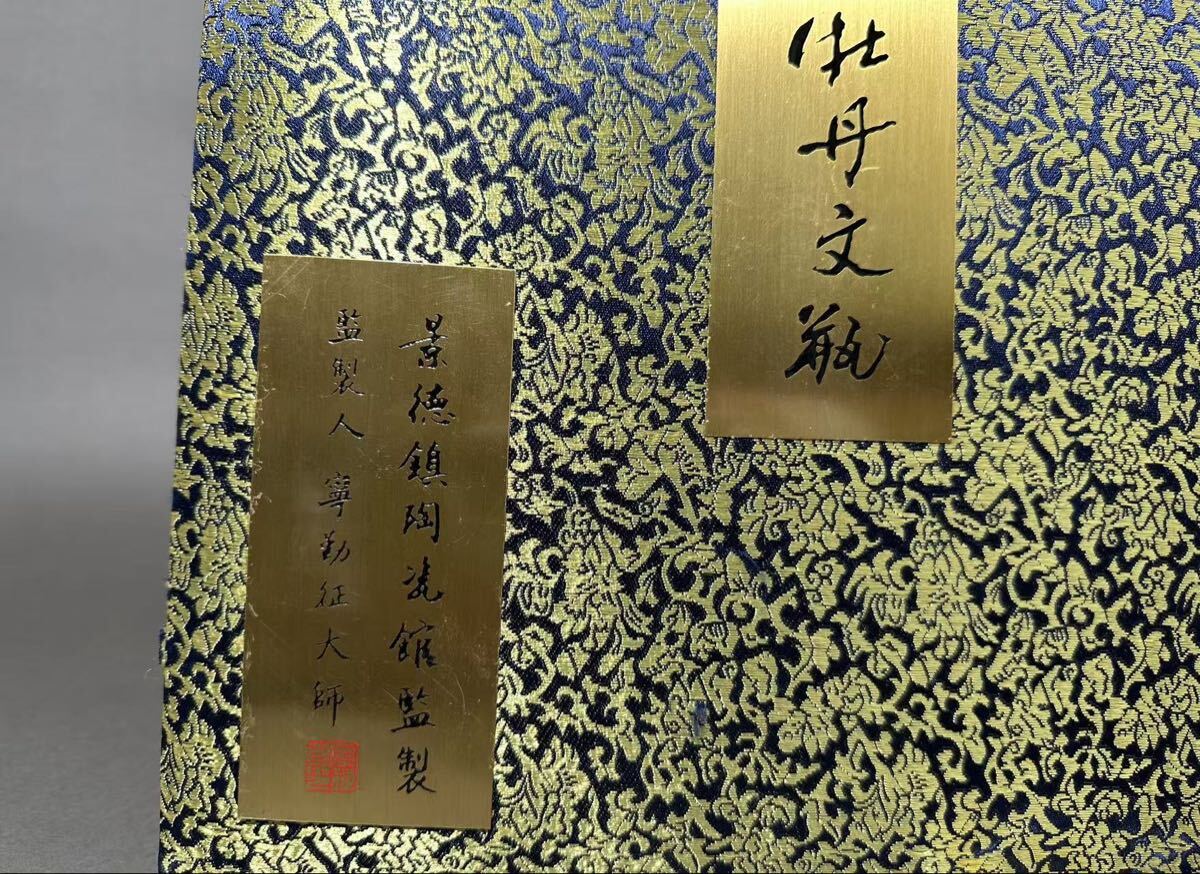 牡丹文瓶
景徳鎮陶瓷館監製
監製人 寧勤征大師